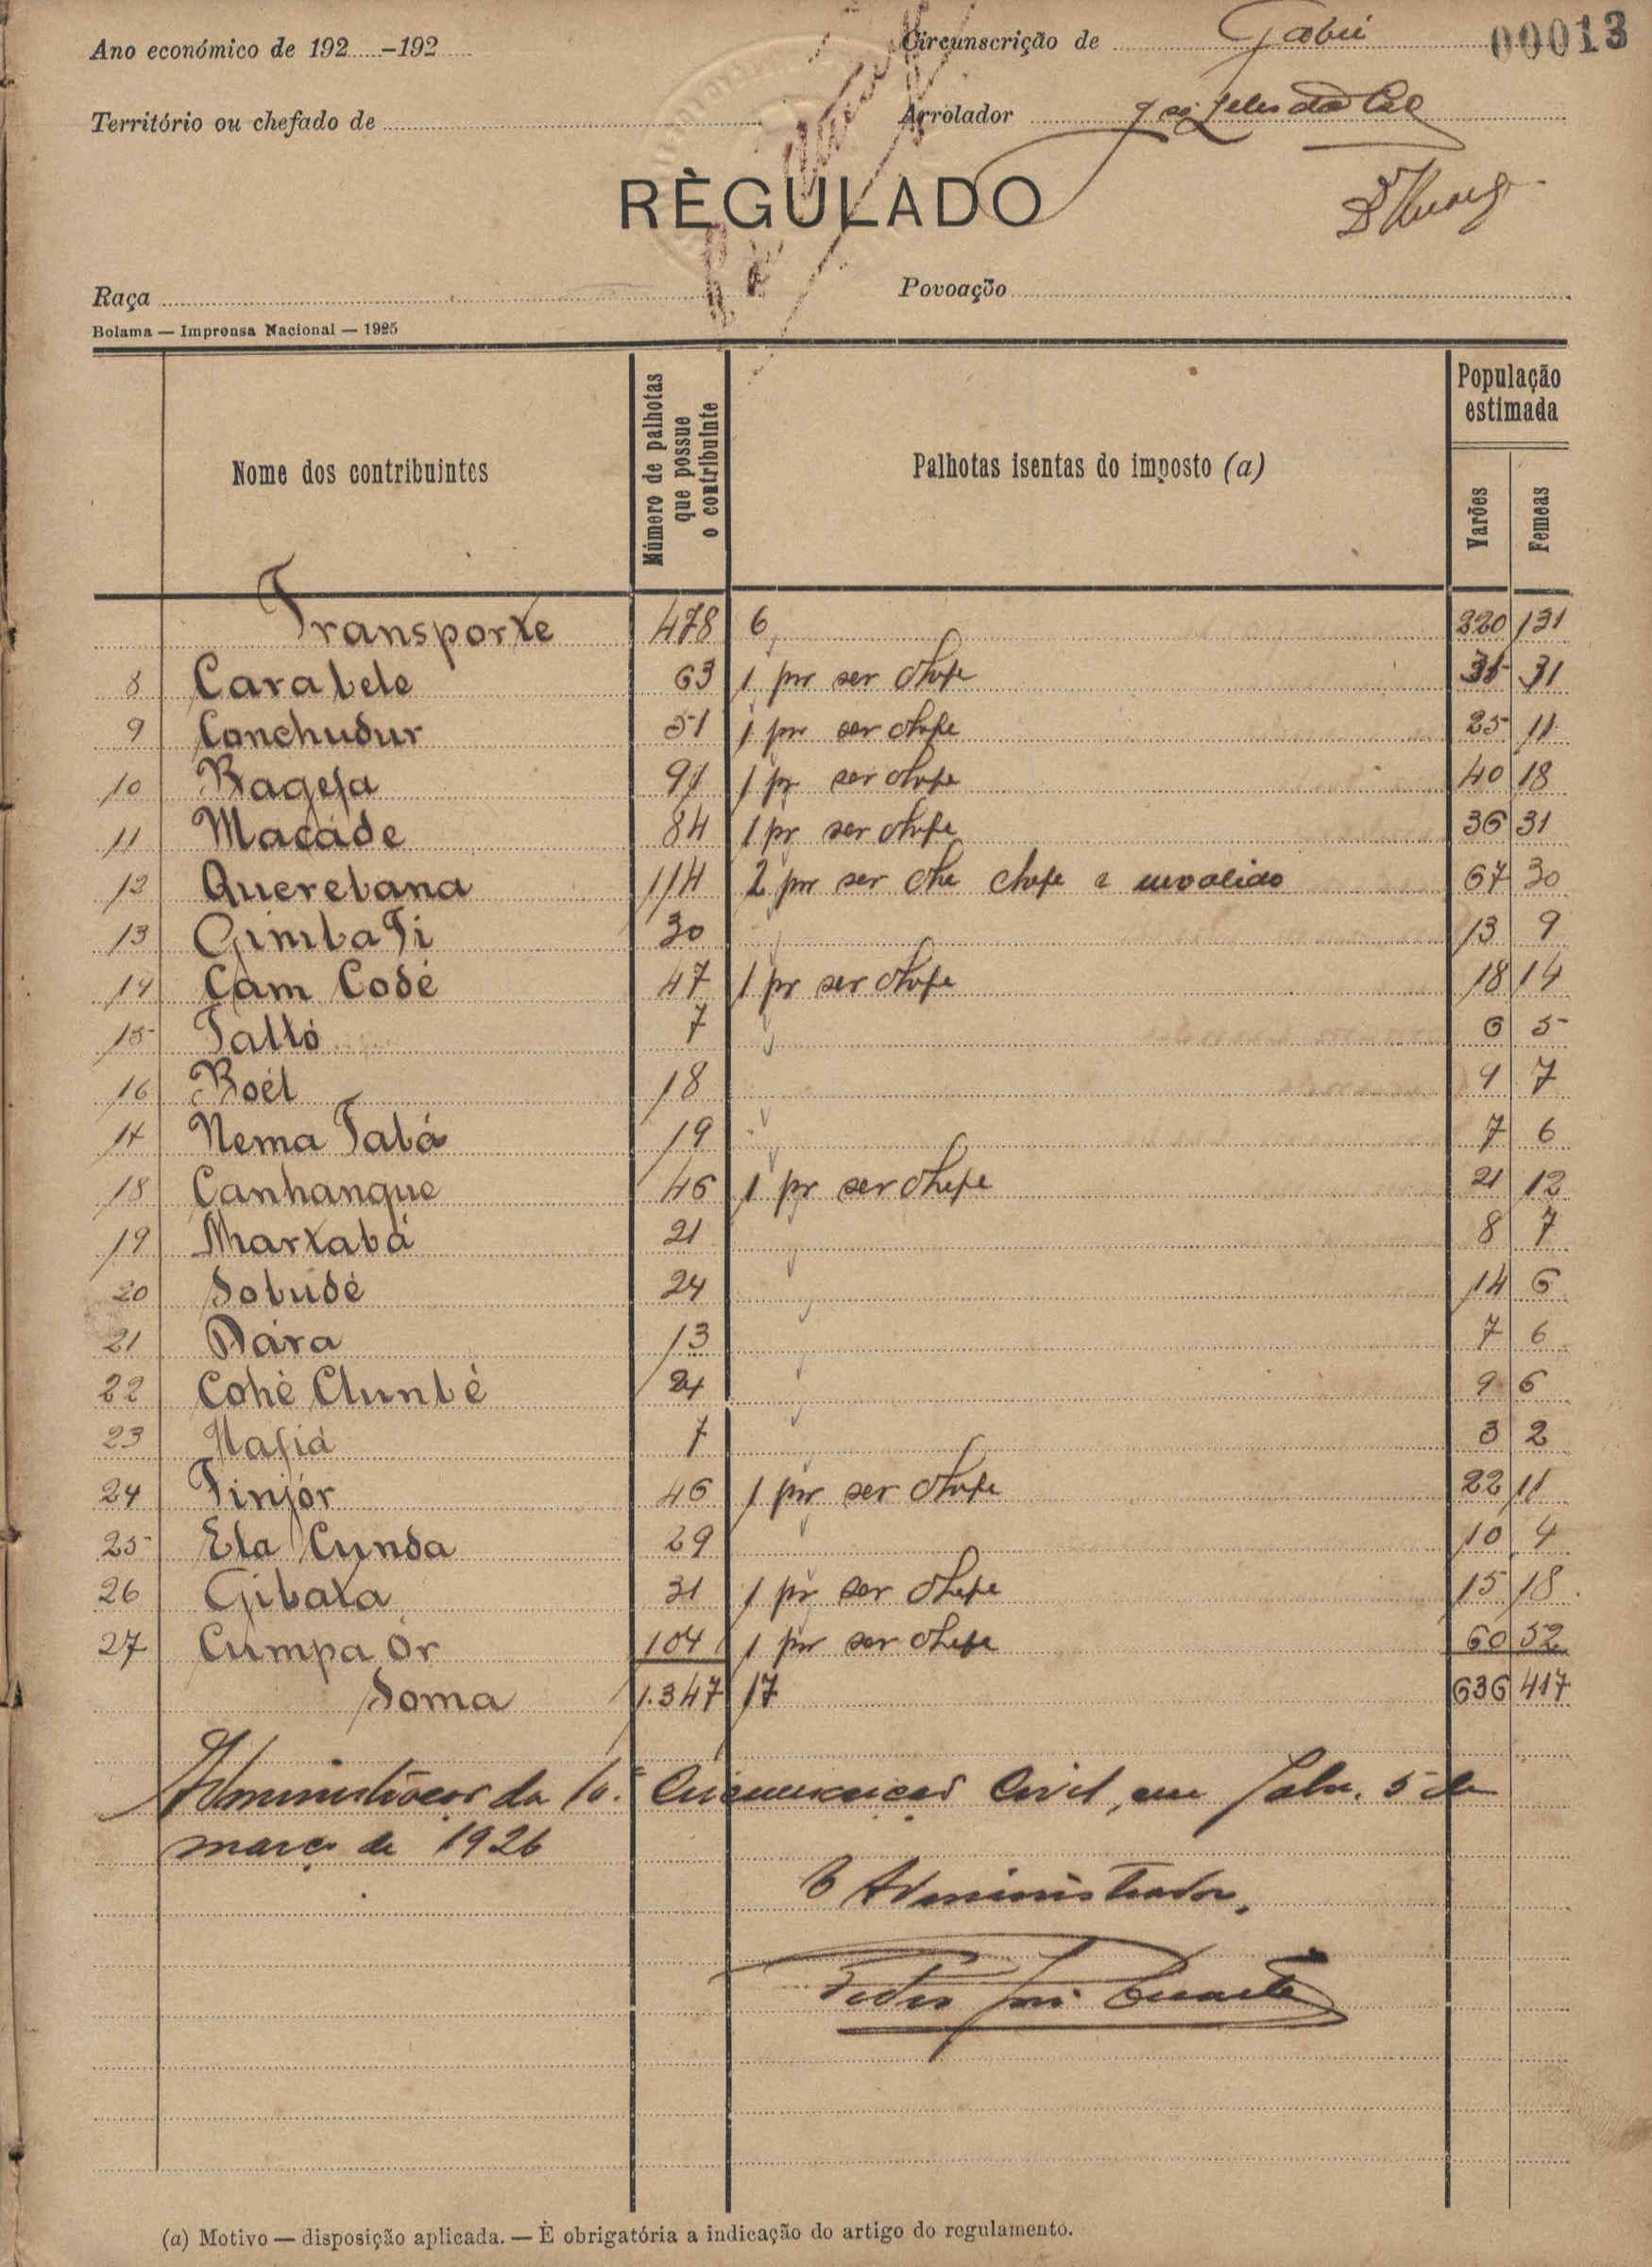 Ano económico de 192 -192 Circunscrição de Gabú 00013
Território ou chefado de Arrolador
RÈGULADO
Raça Povoação
Bolama — Imprensa Nacional — 1925
Nome dos contribuintes Número de palhotas que possue o contribuinte Palhotas isentas do imposto (a) População estimada Varões Femeas
Transporte 478 6 220 131
8 Carabele 63 1 por ser chefe 31
9 Canchudur 51 1 por ser chefe 25 11
10 Bagesa 91 1 pr ser chefe 40 18
11 Macáde 84 1 pr ser chefe 36 31
12 Querebana 114 2 por ser che chefe e invalido 67 30
13 Gimba Ti 30 13 9
14 Çam Codé 47 1 pr ser chefe 18 14
15 Talló 7 6 5
16 Boél 18 9 7
17 Nema Tabá 19 7 6
18 Canhanque 46 1 pr ser chefe 21 12
19 Martabá 21 8 7
20 Sobudé 24 14 6
21 Dára 13 7 6
22 Cohé 24 9 6
23 7 3 2
24 Tinjór 46 1 por ser chefe 22 11
25 Ela Cunda 29 10 4
26 Gibata 31 1 pr ser chefe 15 18
27 Cumpa Ór 104 1 por ser chefe 60 52
Soma 1.347 17 636 417
Administração da 10.ª Circunscrição Civil, em Gabu. 5 de
março de 1926
O Administrador,
Pedro José Duarte
(a) Motivo — disposição aplicada. — É obrigatória a indicação do artigo do regulamento.